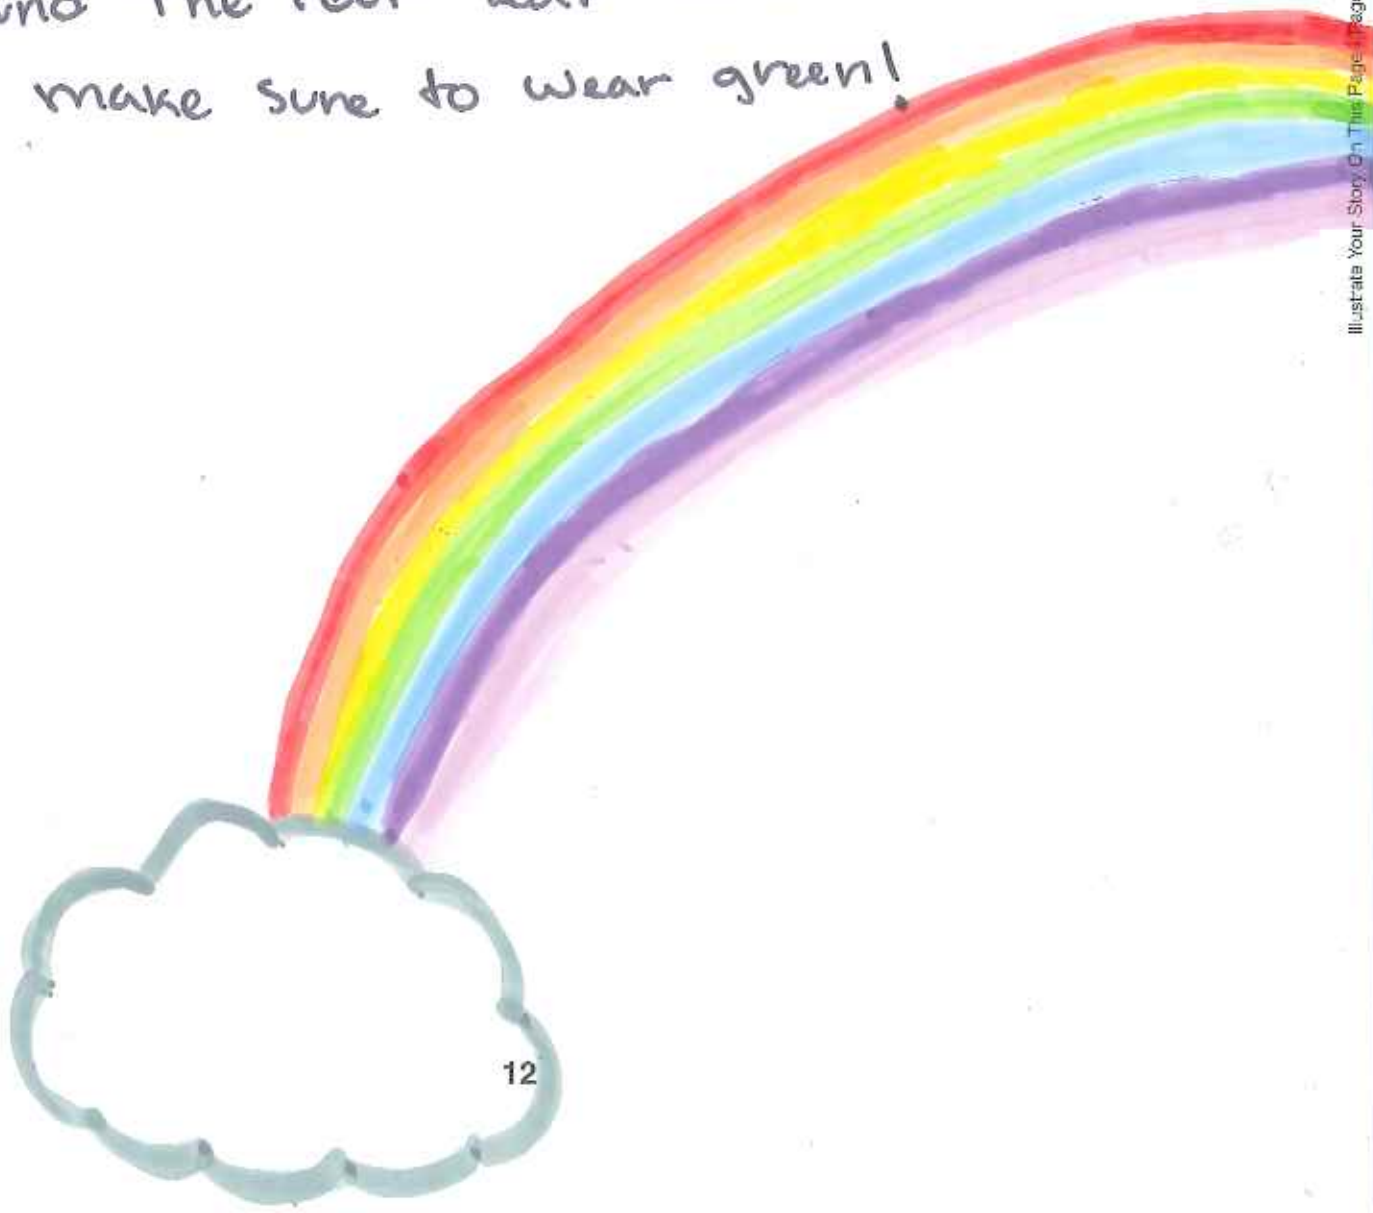 the
make sure to wear green!
Illustrate Your Story On This Page
12